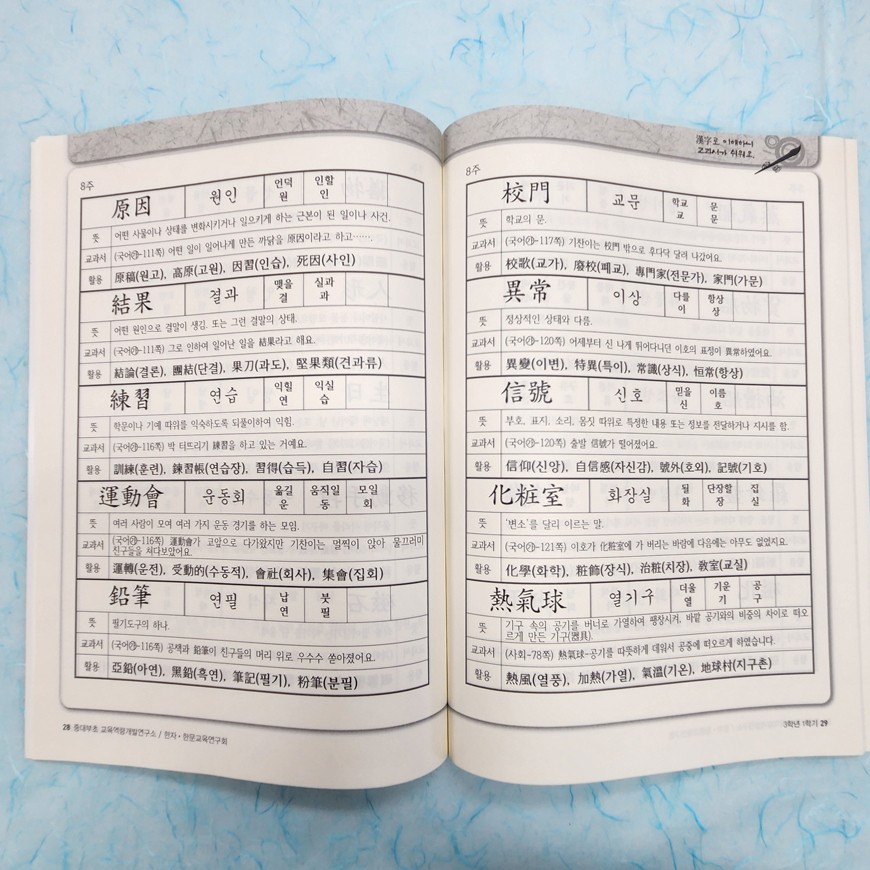 8주
原因 원인 언덕 원 인할 인
뜻 어떤 사물이나 상태를 변화시키거나 일으키게 하는 근본이 된 일이나 사건.
교과서 (국어㉮-111쪽) 어떤 일이 일어나게 만든 까닭을 原因이라고 하고…….
활용 原稿(원고), 高原(고원), 因習(인습), 死因(사인)
結果 결과 맺을 결 실과 과
뜻 어떤 원인으로 결말이 생김. 또는 그런 결말의 상태.
교과서 (국어㉮-111쪽) 그로 인하여 일어난 일을 結果라고 해요.
활용 結論(결론), 團結(단결), 果刀(과도), 堅果類(견과류)
練習 연습 익힐 연 익실 습
뜻 학문이나 기예 따위를 익숙하도록 되풀이하여 익힘.
교과서 (국어㉮-116쪽) 박 터뜨리기 練習을 하고 있는 거예요.
활용 訓練(훈련), 鍊習帳(연습장), 習得(습득), 自習(자습)
運動會 운동회 옮길 운 움직일 동 모일 회
뜻 여러 사람이 모여 여러 가지 운동 경기를 하는 모임.
교과서 (국어㉮-116쪽) 運動會가 코앞으로 다가왔지만 기찬이는 멀찍이 앉아 물끄러미
친구들을 쳐다보았어요.
활용 運轉(운전), 受動的(수동적), 會社(회사), 集會(집회)
鉛筆 연필 납 연 붓 필
뜻 필기도구의 하나.
교과서 (국어㉮-116쪽) 공책과 鉛筆이 친구들의 머리 위로 우수수 쏟아졌어요.
활용 亞鉛(아연), 黑鉛(흑연), 筆記(필기), 粉筆(분필)
28 중대부초 교육역량개발연구소 / 한자·한문교육연구회
漢字로 이해하니
교과서가 쉬워요.
8주
校門 교문 학교 교 문 문
뜻 학교의 문.
교과서 (국어㉮-117쪽) 기찬이는 校門 밖으로 후다닥 달려 나갔어요.
활용 校歌(교가), 廢校(폐교), 專門家(전문가), 家門(가문)
異常 이상 다를 이 항상 상
뜻 정상적인 상태와 다름.
교과서 (국어㉮-120쪽) 어제부터 신 나게 뛰어다니던 이호의 표정이 異常하였어요.
활용 異變(이변), 特異(특이), 常識(상식), 恒常(항상)
信號 신호 믿을 신 이름 호
뜻 부호, 표지, 소리, 몸짓 따위로 특정한 내용 또는 정보를 전달하거나 지시를 함.
교과서 (국어㉮-120쪽) 출발 信號가 떨어졌어요.
활용 信仰(신앙), 自信感(자신감), 號外(호외), 記號(기호)
化粧室 화장실 될 화 단장할 장 집 실
뜻 '변소'를 달리 이르는 말.
교과서 (국어㉮-121쪽) 이호가 化粧室에 가 버리는 바람에 다음에는 아무도 없었지요.
활용 化學(화학), 粧飾(장식), 治粧(치장), 敎室(교실)
熱氣球 열기구 더울 열 기운 기 공 구
뜻 기구 속의 공기를 버너로 가열하여 팽창시켜, 바깥 공기와의 비중의 차이로 떠오
르게 만든 기구(器具).
교과서 (사회-78쪽) 熱氣球-공기를 따뜻하게 데워서 공중에 떠오르게 하였습니다.
활용 熱風(열풍), 加熱(가열), 氣溫(기온), 地球村(지구촌)
3학년 1학기 29